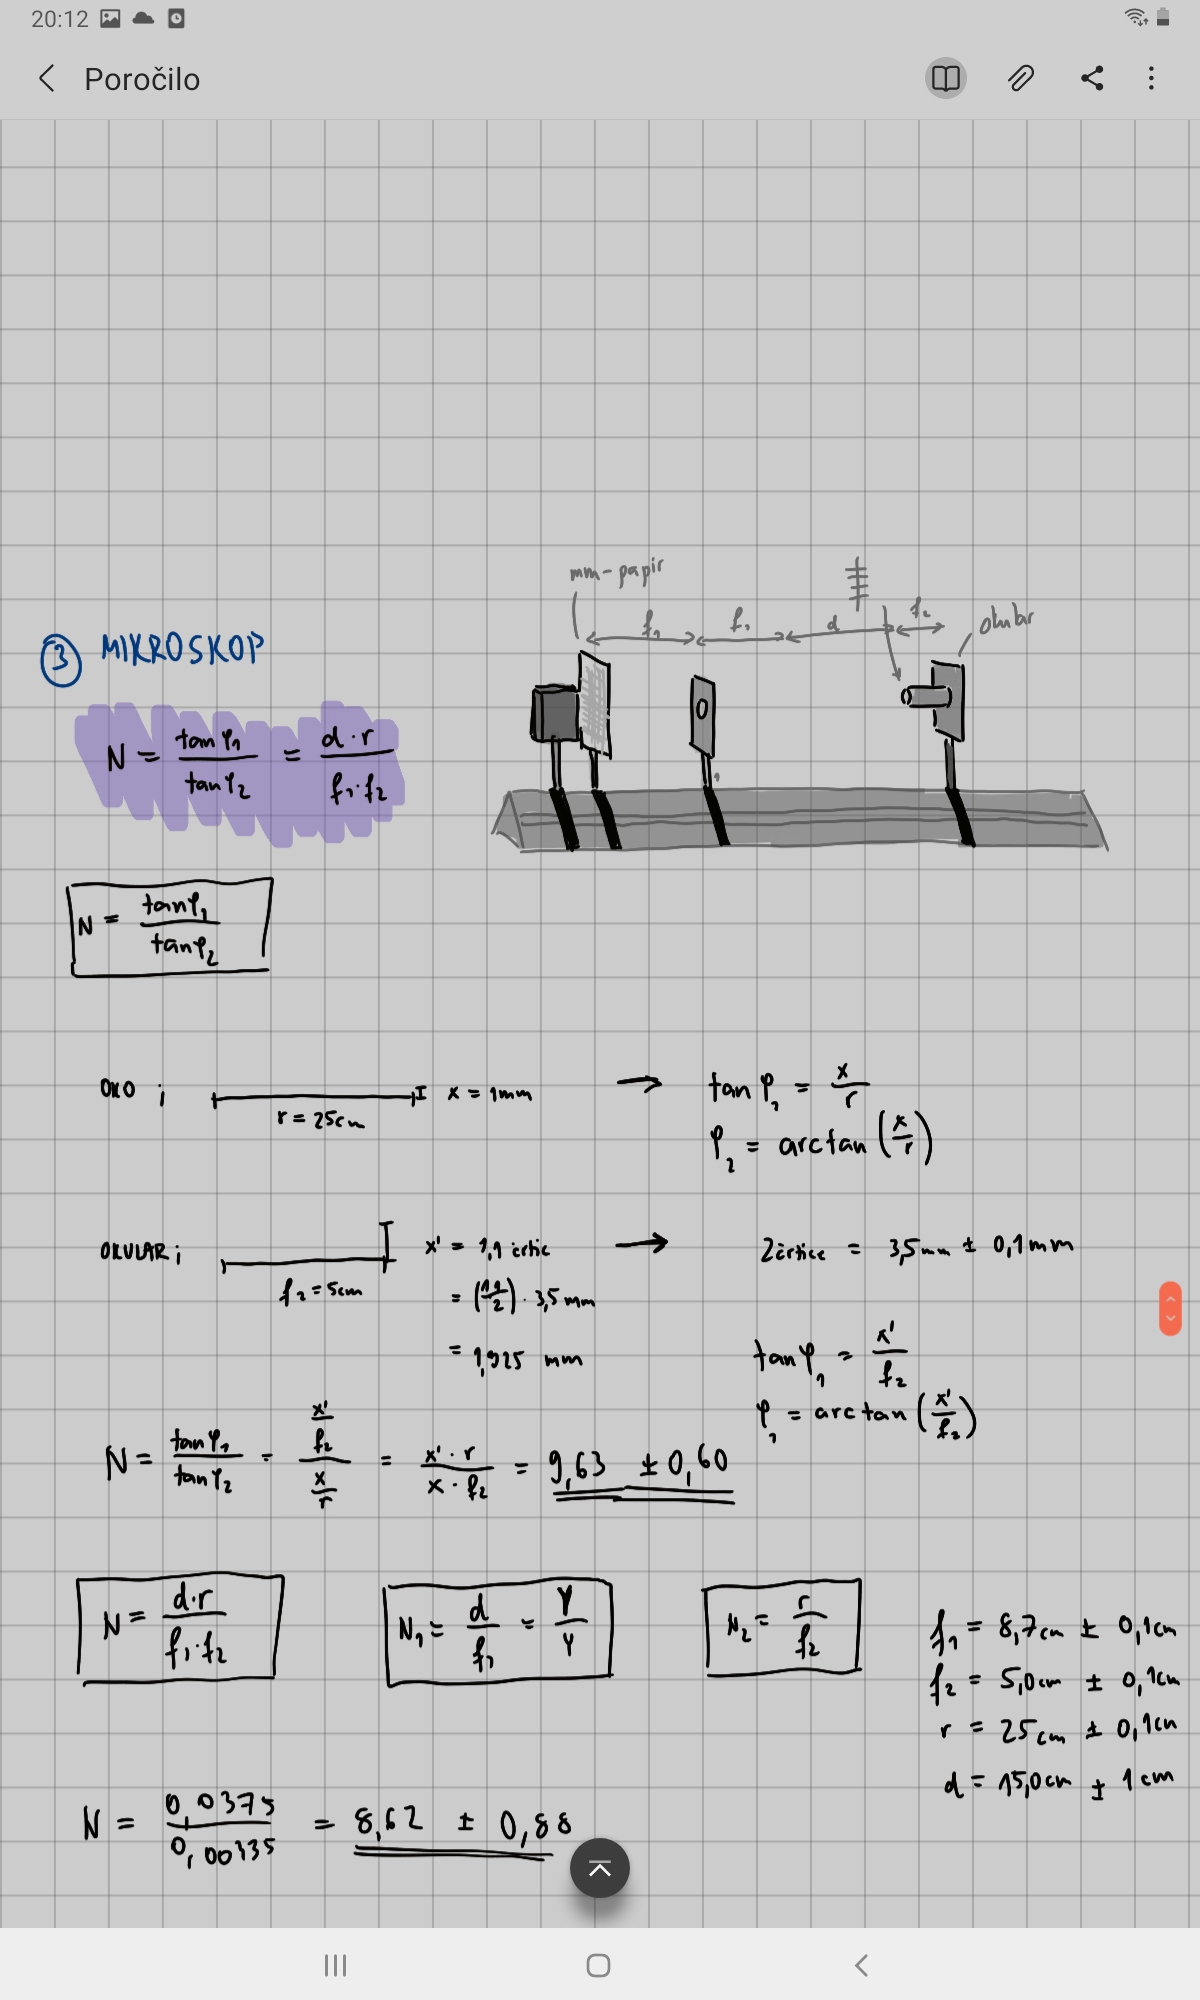 20:12
Poročilo
mm-papir
f₁ f₁ d f₂ okular
③ MIKROSKOP
N = tanφ₁/tanφ₂ = d·r/f₁·f₂
N = tanφ₁/tanφ₂
OKO ; r = 25cm x = 1mm → tan φ₂ = x/r
φ₂ = arctan (x/r)
OKULAR ; f₂ = 5cm x' = 1,1 črtic → 2črtice = 3,5mm ± 0,1mm
= (1,1/2) · 3,5mm
= 1,925 mm
tanφ₁ = x'/f₂
φ₁ = arctan (x'/f₂)
N = tanφ₁/tanφ₂ = (x'/f₂)/(x/r) = x'·r/x·f₂ = 9,63 ± 0,60
N = d·r/f₁·f₂ N₁ = d/f₁ = Y/Y N₂ = r/f₂
f₁ = 8,7cm ± 0,1cm
f₂ = 5,0cm ± 0,1cm
r = 25cm ± 0,1cm
d = 15,0cm ± 1cm
N = 0,0375/0,00435 = 8,62 ± 0,88